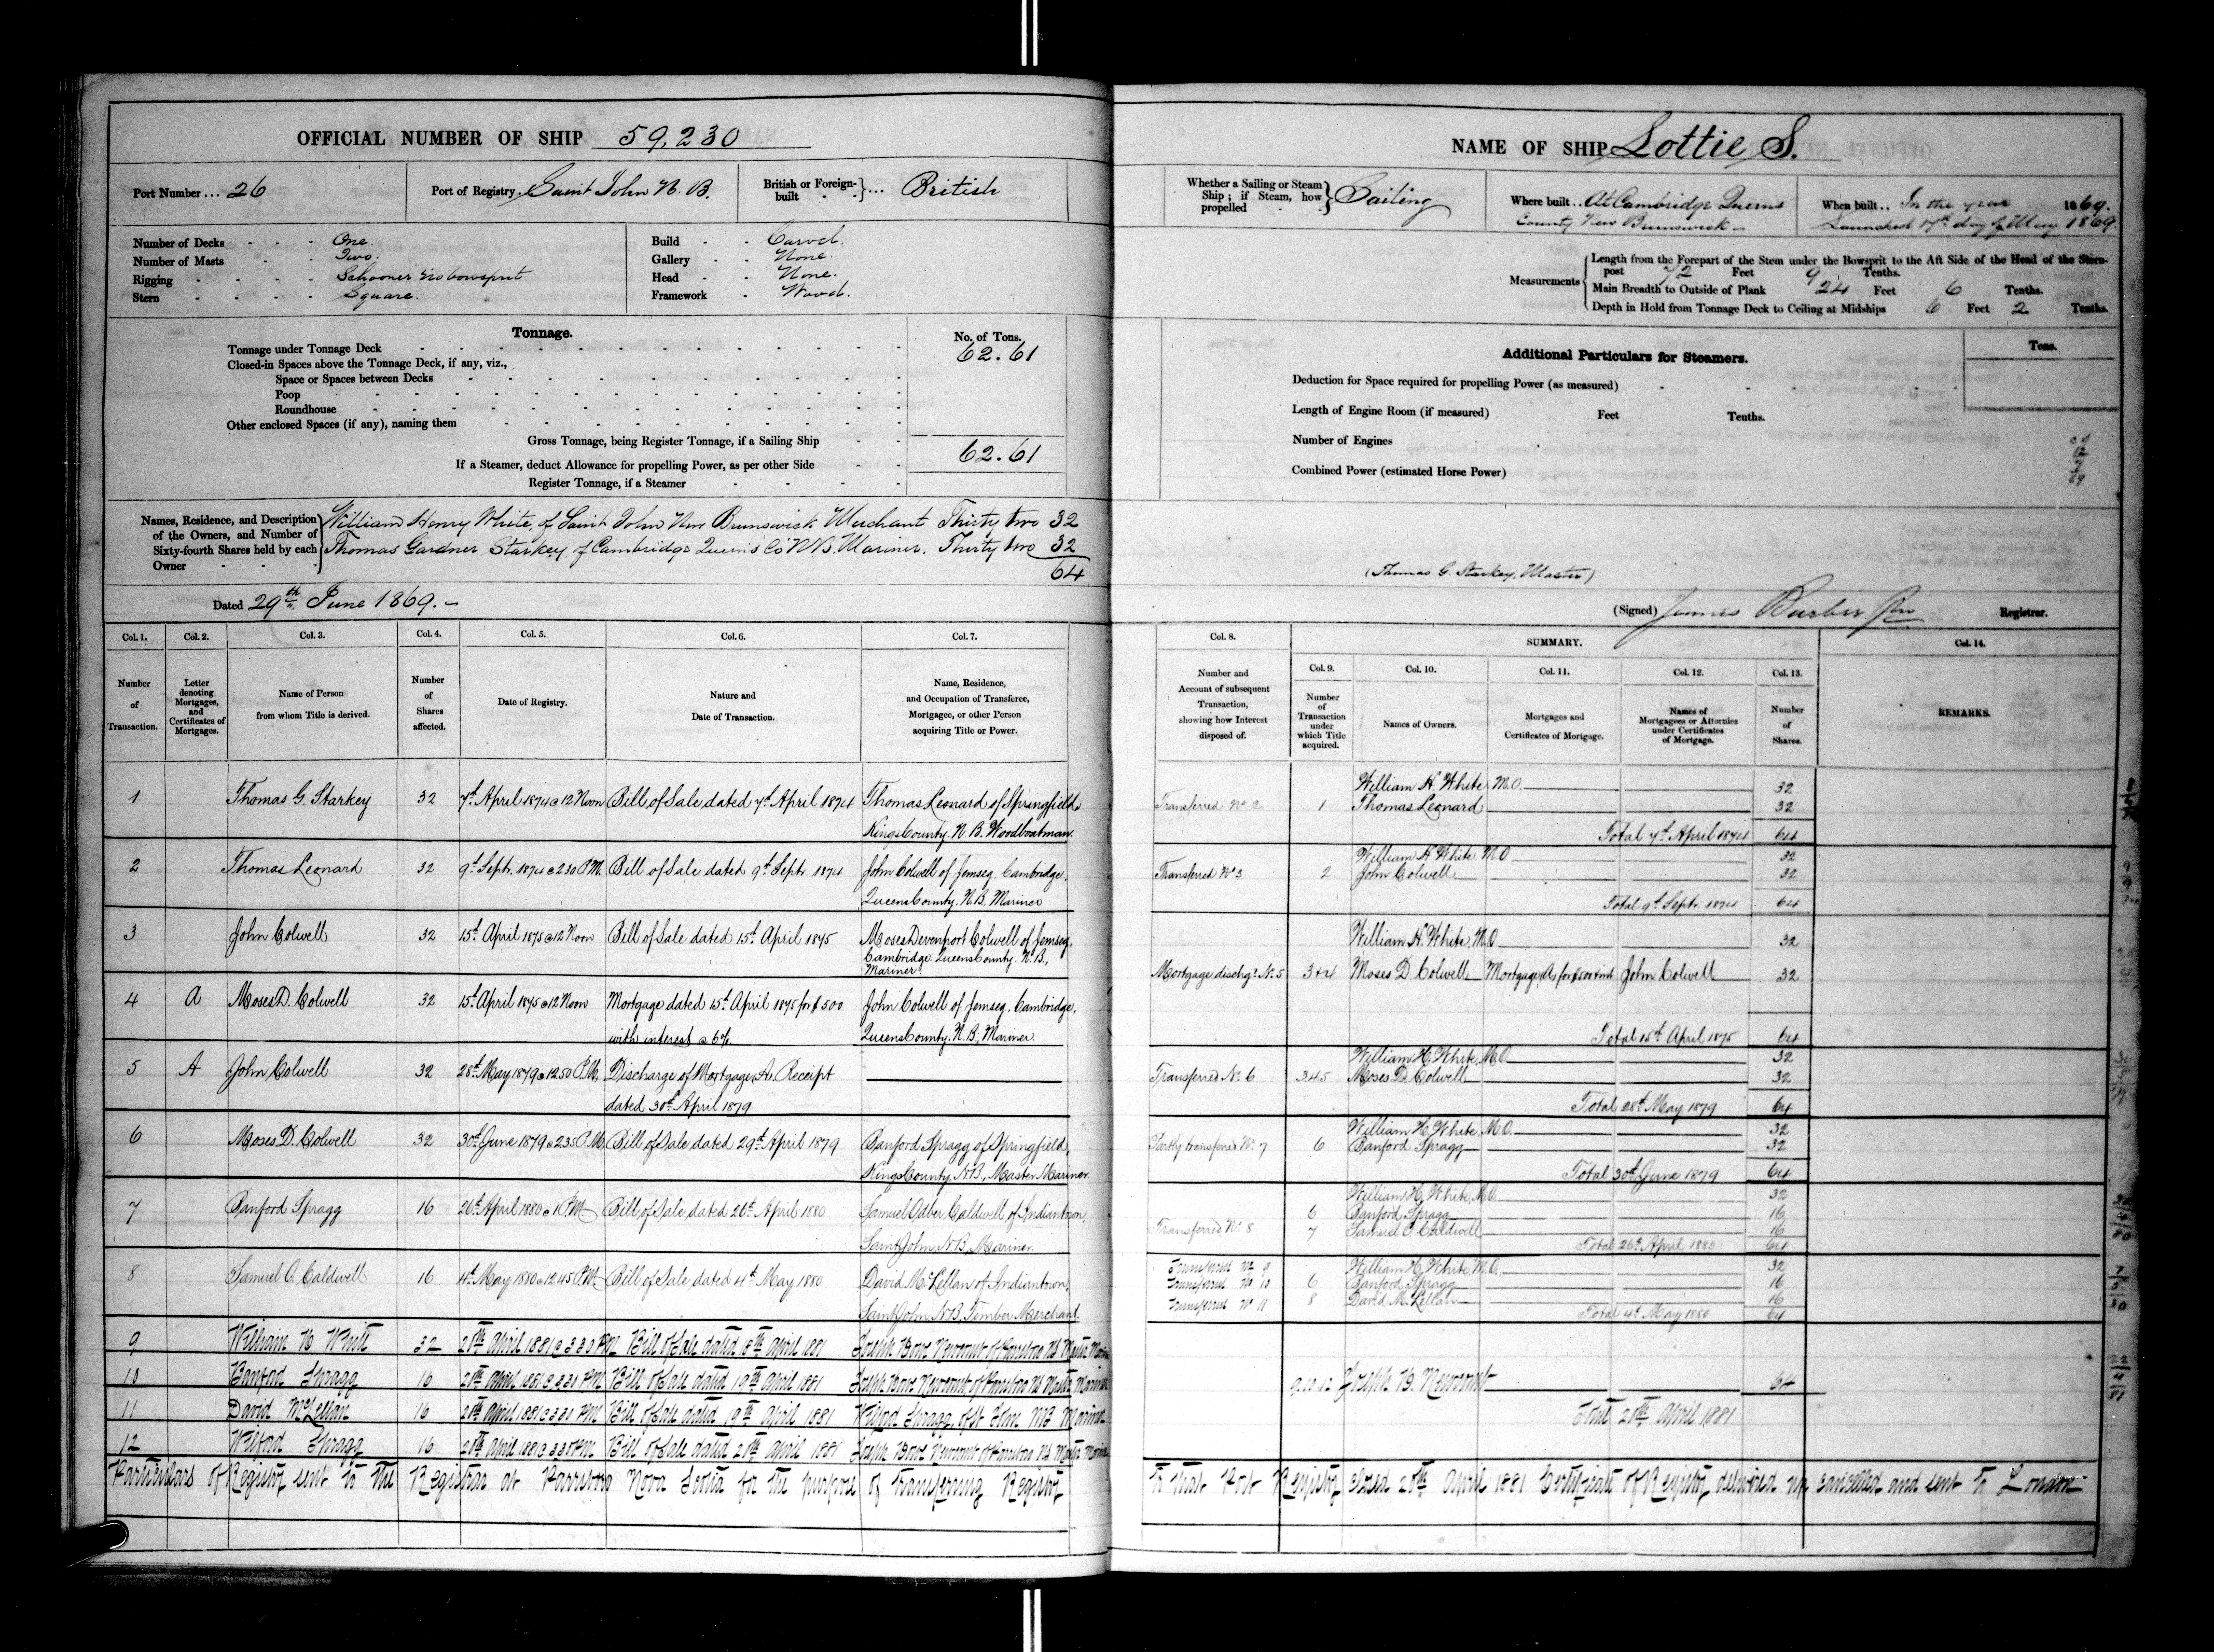 OFFICIAL NUMBER OF SHIP 59,230
Port Number ... 26
Port of Registry Saint John N. B.
British or Foreign-built ... British
Number of Decks One.
Number of Masts Two.
Rigging Schooner no bowsprit
Stern Square.
Build Carvel.
Gallery None.
Head None.
Framework Wood.
Tonnage.
No. of Tons.
Tonnage under Tonnage Deck 62.61
Closed-in Spaces above the Tonnage Deck, if any, viz.,
Space or Spaces between Decks
Poop
Roundhouse
Other enclosed Spaces (if any), naming them
Gross Tonnage, being Register Tonnage, if a Sailing Ship 62.61
If a Steamer, deduct Allowance for propelling Power, as per other Side
Register Tonnage, if a Steamer
Names, Residence, and Description of the Owners, and Number of Sixty-fourth Shares held by each Owner
William Henry White, of Saint John New Brunswick Merchant Thirty two 32
Thomas Gardner Starkey of Cambridge Queens Co N.B. Mariner. Thirty two 32
64
Dated 29th June 1869.
Col. 1. Col. 2. Col. 3. Col. 4. Col. 5. Col. 6. Col. 7.
Number of Transaction.
Letter denoting Mortgages, and Certificates of Mortgages.
Name of Person from whom Title is derived.
Number of Shares affected.
Date of Registry.
Nature and Date of Transaction.
Name, Residence, and Occupation of Transferee, Mortgagee, or other Person acquiring Title or Power.
1 Thomas G. Starkey 32 7th April 1874 @ 12 Noon Bill of Sale dated 7th April 1874 Thomas Leonard of Springfield
Kings County. N B. Woodboatman
2 Thomas Leonard 32 9th Septr. 1874 @ 2.30 P.M. Bill of Sale dated 9th Septr. 1874 John Colwell of Jemseg, Cambridge,
Queens County. N.B. Mariner
3 John Colwell 32 15th April 1875 @ 12 Noon Bill of Sale dated 15th April 1875 Moses Devenport Colwell of Jemseg,
Cambridge. Queens County. N.B.,
Mariner.
4 A Moses D. Colwell 32 15th April 1875 @ 12 Noon Mortgage dated 15th April 1875 for $500 John Colwell of Jemseg, Cambridge,
with interest @ 6% Queens County. N.B, Mariner
5 A John Colwell 32 28th May 1879 @ 12.50 P.M. Discharge of Mortgage A. Receipt
dated 30th April 1879
6 Moses D. Colwell 32 30th June 1879 @ 2.35 P.M. Bill of Sale dated 29th April 1879 Banford Spragg of Springfield,
Kings County, N.B., Master Mariner
7 Banford Spragg 16 26th April 1880 @ 1 P.M. Bill of Sale dated 26th April 1880 Samuel Odber Caldwell of Indiantown,
Saint John N.B. Mariner.
8 Samuel O. Caldwell 16 4th May 1880 @ 12.45 P.M. Bill of Sale dated 4th May 1880 David McLellan of Indiantown,
Saint John N.B, Timber Merchant.
9 William H White 32 28th April 1881 @ 3 30 PM Bill of Sale dated 18th April 1881 Joseph Newcomb of Parrsboro NS Master Mariner
10 Banford Spragg 16 28th April 1881 @ 3 31 PM Bill of Sale dated 19th April 1881 Joseph Newcomb of Parrsboro NS Master Mariner
11 David McLellan 16 28th April 1881 PM Bill of Sale dated 19th April 1881 Wilford Spragg of St John NB Mariner
12 Wilford Spragg 16 28th April 1881 PM Bill of Sale dated 28th April 1881 Joseph Newcomb of Parrsboro NS Master Mariner
Particulars of Registry sent to the Registrar at Parrsboro Nova Scotia for the purpose of transferring Registry
NAME OF SHIP Lottie S.
Whether a Sailing or Steam Ship; if Steam, how propelled Sailing
Where built.. At Cambridge Queens
County New Brunswick
When built.. In the year 1869.
Launched 17th day of May 1869.
Measurements
Length from the Forepart of the Stem under the Bowsprit to the Aft Side of the Head of the Stern-
post 72 Feet 9 Tenths.
Main Breadth to Outside of Plank 24 Feet 6 Tenths.
Depth in Hold from Tonnage Deck to Ceiling at Midships 6 Feet 2 Tenths.
Additional Particulars for Steamers.
Tons.
Deduction for Space required for propelling Power (as measured)
Length of Engine Room (if measured) Feet Tenths.
Number of Engines
Combined Power (estimated Horse Power)
(Thomas G. Starkey, Master)
(Signed) James Barber Registrar.
Col. 8. SUMMARY. Col. 14.
Col. 9. Col. 10. Col. 11. Col. 12. Col. 13.
Number and Account of subsequent Transaction, showing how Interest disposed of.
Number of Transaction under which Title acquired.
Names of Owners.
Mortgages and Certificates of Mortgage.
Names of Mortgagees or Attornies under Certificates of Mortgage.
Number of Shares.
REMARKS.
William H. White M.O. 32
Transferred No 2 1 Thomas Leonard 32
Total 7th April 1874 64
William H White M.O 32
Transferred No 3 2 John Colwell 32
Total 9th Septr. 1874 64
William H. White, M.O 32
Mortgage dischgd No. 5 3+4 Moses D. Colwell Mortgage A, for $500 + int John Colwell 32
Total 15th April 1875 64
William H. White, M.O 32
Transferred No. 6 3.4.5 Moses D. Colwell 32
Total 28th May 1879 64
William H. White M.O. 32
Partly transferred No. 7 6 Banford Spragg 32
Total 30th June 1879 64
William H. White, M.O. 32
6 Banford Spragg 16
Transferred No. 8 7 Samuel O. Caldwell 16
Total 26th April 1880 64
Transferred No 9 William H. White, M.O. 32
Transferred No 10 6 Banford Spragg 16
Transferred No 11 8 David McLellan 16
Total 4th May 1880 64
9.10.12 Joseph B. Newcomb 64
Total 28th April 1881
To that Port Registry closed 28th April 1881 Certificate of Registry delivered up cancelled and sent to London